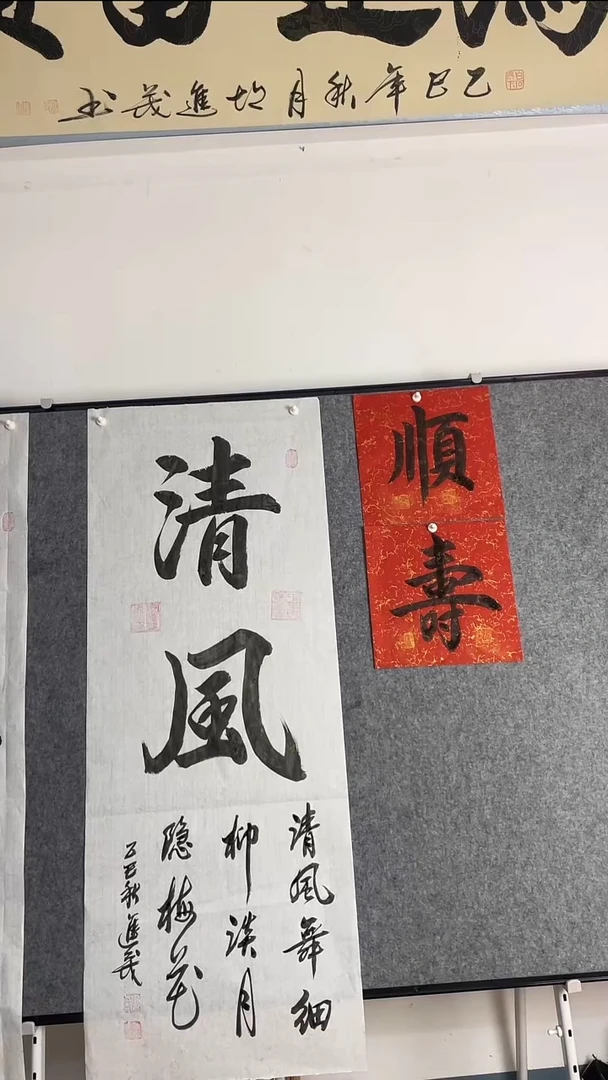 乙巳年秋月於進義书
清
風
清风舞细
柳淡月
隐梅花
乙巳秋進義
順
壽